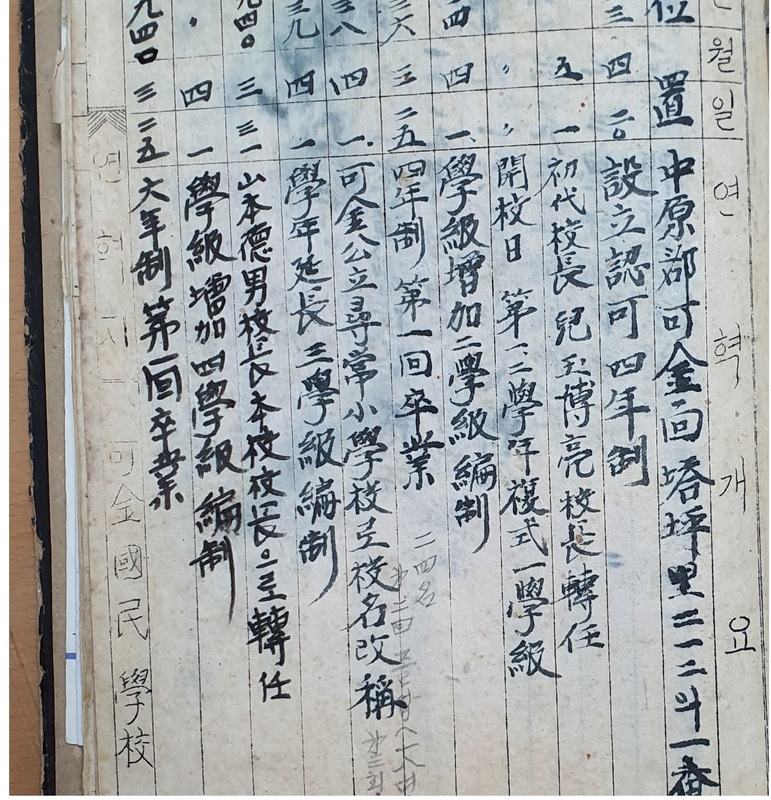 월 일 연 혁 개 요
位 置 中原郡可金面塔坪里二一二의一番
三 四 二〇 設立認可四年制
五 一 初代校長兒玉博亮校長轉任
〃 〃 開校日 第一、二學年複式一學級
四 四 一 學級增加二學級編制
三六 三 二五 四年制 第一回卒業 二四名
三八 四 一 可金公立尋常小學校로校名改稱
三九 四 一 學年延長三學級編制
九四〇 三 三一 山本德男校長本校校長으로轉任
〃 四 一 學級增加四學級編制
九四〇 三 二五 六年制第一回卒業
연 혁 지 — 可金國民學校